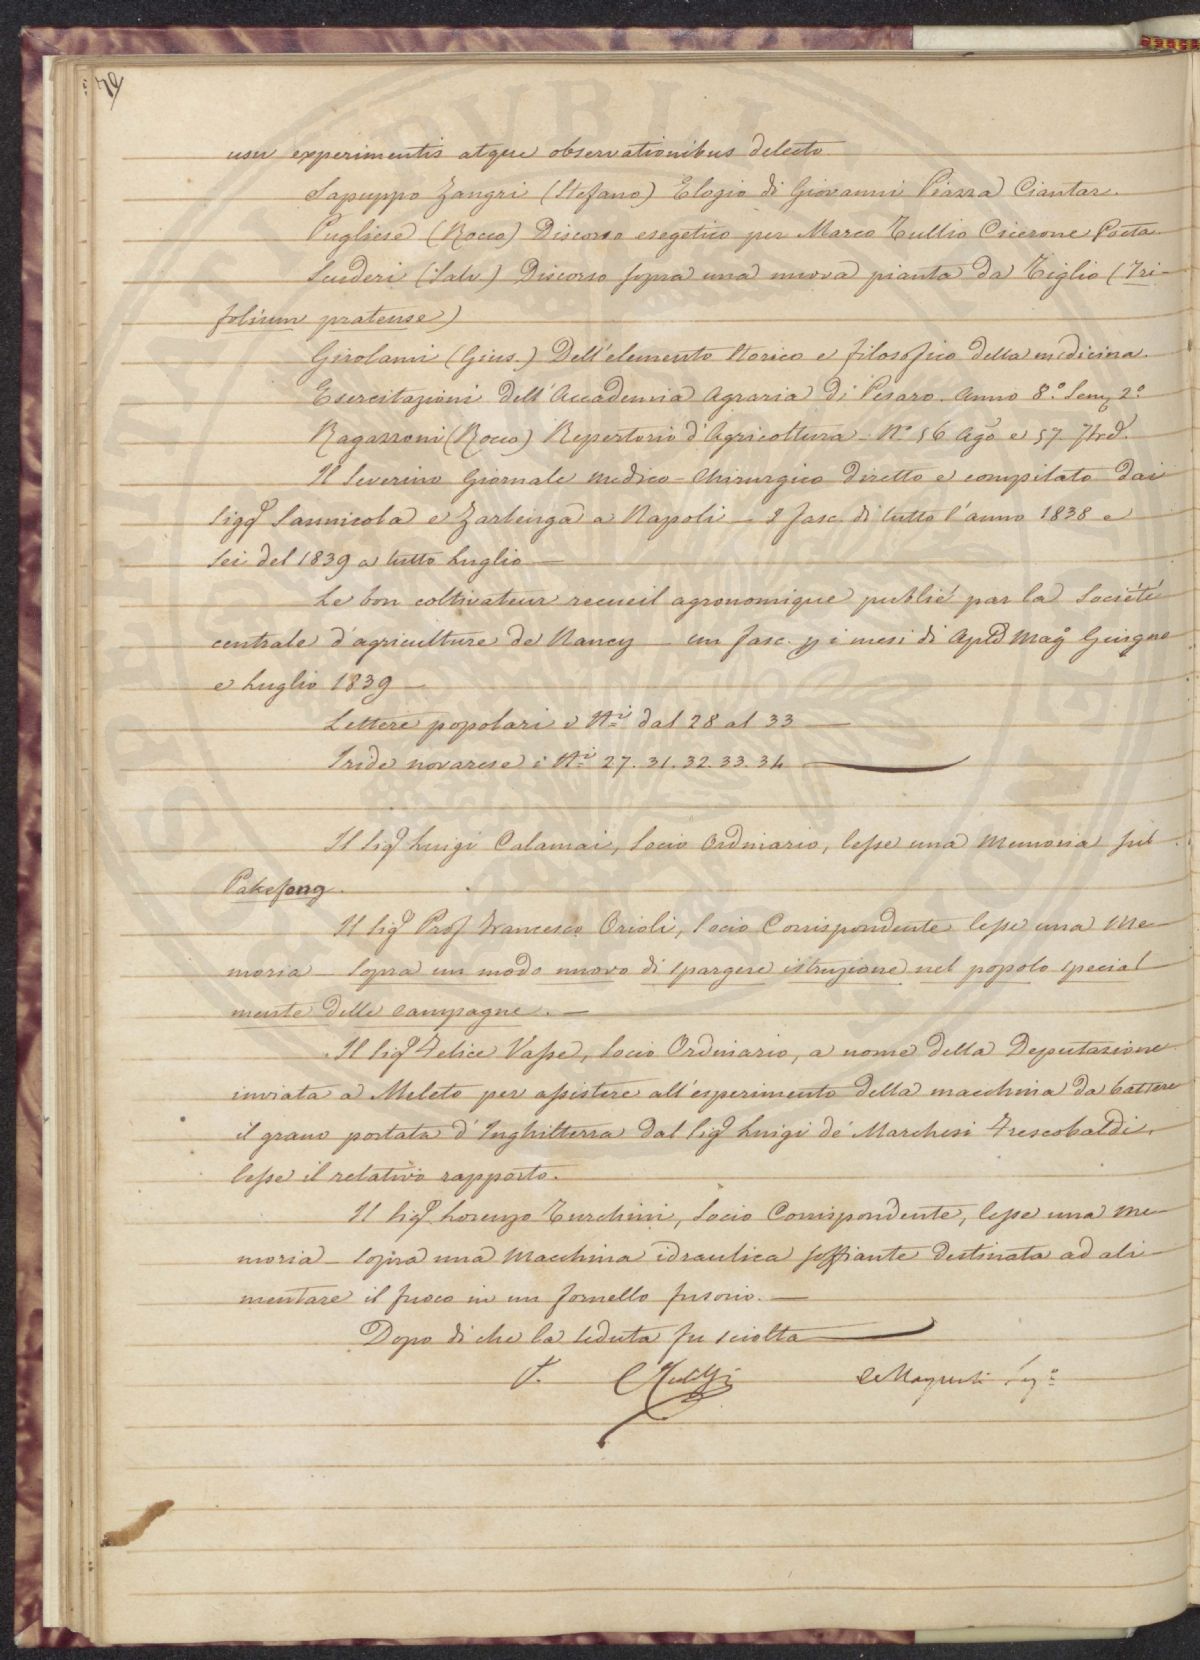 usu experimentis atque observationibus delecto
Sapuppo Zangri (Stefano) Elogio di Giovanni Piazza Ciantar.
Pugliese (Rocco) Discorso esegetico per Marco Tullio Cicerone Poeta
Scuderi (Salv.) Discorso sopra una nuova pianta da Tiglio (Tri-
folium pratense)
Girolami (Gius.) Dell'elemento storico e filosofico della medicina.
Esercitazioni dell'Accademia Agraria di Pesaro. Anno 8.° Sem. 2.°
Ragazzoni (Rocco) Repertorio d'Agricoltura - N.° 56 Ago e 57 7bre.
Il Severino Giornale medico-chirurgico diretto e compilato dai
Sigg.i Sannicola e Zarlenga a Napoli - 9 fasc. di tutto l'anno 1838 e
sei del 1839 a tutto Luglio —
Le bon coltivateur recueil agronomique publié par la Société
centrale d'agriculture de Nancy - un fasc. p i mesi di Aple Mago Giugno
e Luglio 1839 —
Lettere popolari i Ni dal 28 al 33 —
Iride novarese i Ni 27. 31. 32. 33. 34 —
Il Sigr Luigi Calamai, Socio Ordinario, lesse una Memoria sul
Pakefong.
Il Sigr Prof Francesco Orioli, Socio Corrispondente lesse una Me-
moria - sopra un modo nuovo di spargere istruzione nel popolo special-
mente delle campagne. —
Il Sigr Felice Vasse, Socio Ordinario, a nome della Deputazione
inviata a Meleto per assistere all'esperimento della macchina da battere
il grano portata d'Inghilterra dal Sigr Luigi de' Marchesi Frescobaldi,
lesse il relativo rapporto.
Il Sigr Lorenzo Turchini, Socio Corrispondente, lesse una Me-
moria - sopra una Macchina idraulica soffiante destinata ad ali-
mentare il fuoco in un fornello fusorio. —
Dopo di che la seduta fu sciolta —
V.